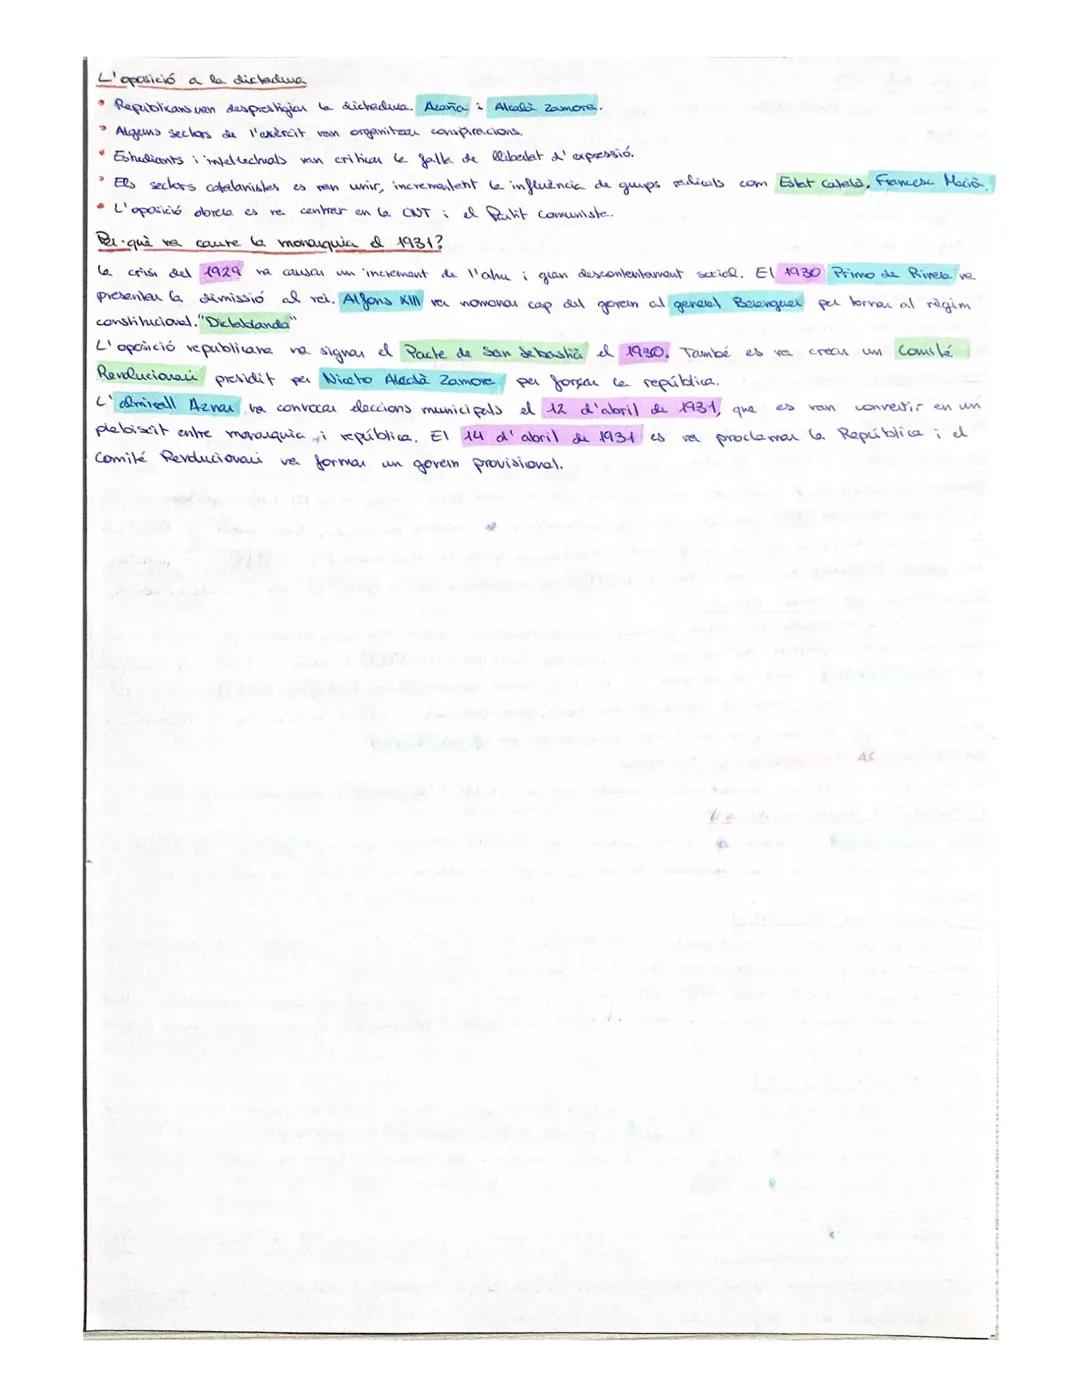 L'oposició a la dictadura
• Republicans van desprestigiar la dictadura. Azaña i Alcalà Zamora.
• Alguns sectors de l'exèrcit van organitzar conspiracions.
• Estudiants i intel·lectuals van criticar la falta de llibertat d'expressió.
• Els sectors catalanistes es van unir, incrementant la influència de grups radicals com Estat Català, Francesc Macià.
• L'oposició obrera es va centrar en la CNT i el Partit Comunista.
Per què va caure la monarquia el 1931?
La crisi del 1929 va causar un increment de l'atur i gran descontentament social. El 1930 Primo de Rivera va
presentar la dimissió al rei. Alfons XIII va nomenar cap del govern al general Berenguer per tornar al règim
constitucional. "Dictablanda"
L'oposició republicana va signar el Pacte de San Sebastià el 1930. També es va crear un Comitè
Revolucionari presidit per Niceto Alcalà Zamora per forçar la república.
L'almirall Aznar va convocar eleccions municipals el 12 d'abril de 1931, que es van convertir en un
plebiscit entre monarquia i república. El 14 d'abril de 1931 es va proclamar la República i el
Comitè Revolucionari va formar un govern provisional.